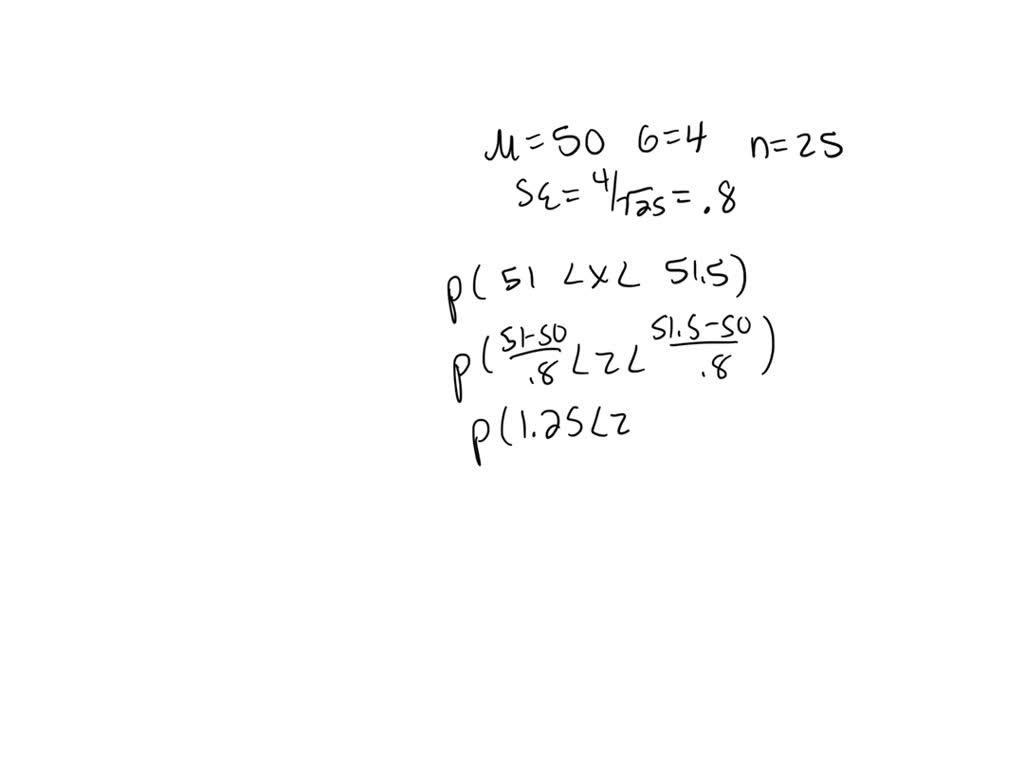 μ=50 σ=4 n=25
SE=4/√25=.8
p(51 <x< 51.5)
p((51-50)/.8 <z< (51.5-50)/.8)
p(1.25<z